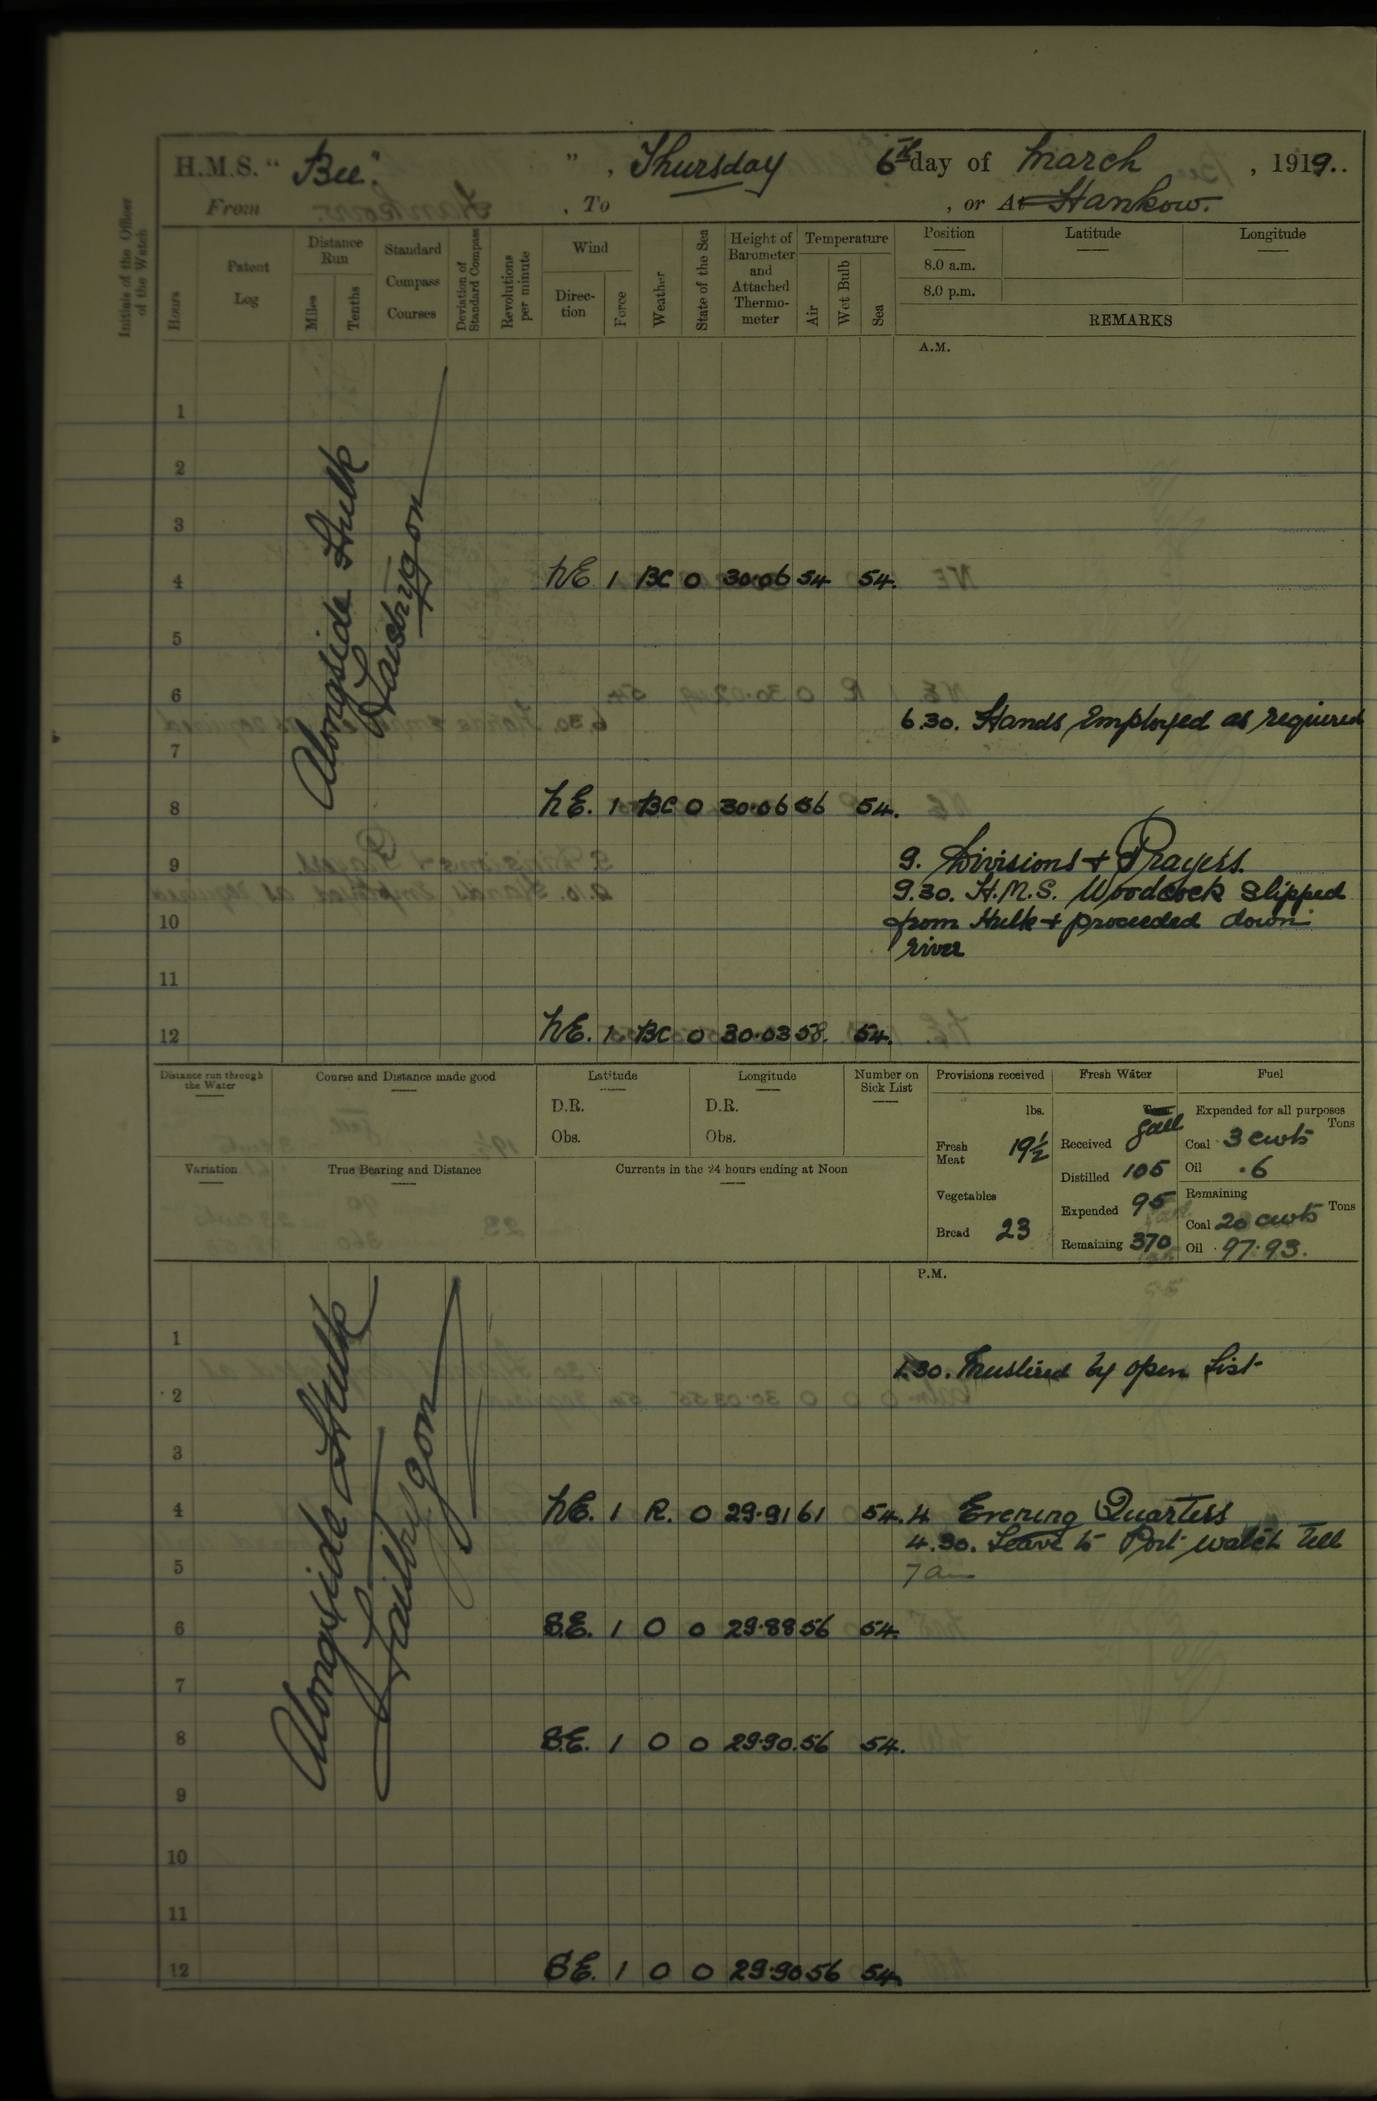 H.M.S. "Bee." ", Thursday 6th day of March, 1919..
From , To , or At Hankow.
Initials of the Officer of the Watch
Hours
Patent Log
Distance Run
Miles
Tenths
Standard Compass Courses
Deviation of Standard Compass
Revolutions per minute
Wind
Direction
Force
Weather
State of the Sea
Height of Barometer and Attached Thermometer
Temperature
Air
Wet Bulb
Sea
Position
Latitude
Longitude
8.0 a.m.
8.0 p.m.
REMARKS
A.M.
Alongside Hulk
1
2
3
4 NE 1 BC 0 30.06 54 54.
5
6
6.30. Hands Employed as required
7
8 NE. 1 BC 0 30.06 56 54.
9 9. Divisions & Prayers.
9.30. H.M.S. Woodcock Slipped
10 from Hulk & proceeded down
river
11
12 NE. 1 BC 0 30.03 58. 54.
Distance run through the Water
Course and Distance made good
Latitude
D.R.
Obs.
Longitude
D.R.
Obs.
Number on Sick List
Provisions received
lbs.
Fresh Meat 19½
Vegetables
Bread 23
Fresh Water
Tons
Gall
Received
Distilled 105
Expended 95
Remaining 370
Fuel
Expended for all purposes
Tons
Coal 3 cwts
Oil .6
Remaining
Tons
Coal 20 cwts
Oil 97.93.
Variation
True Bearing and Distance
Currents in the 24 hours ending at Noon
P.M.
Alongside Hulk
1
1.30. Mustered by open List
2
3
4 NE. 1 R. 0 29.91 61 54. 4 Evening Quarters
4.30. Leave to Port watch till
5 7am
6 S.E. 1 0 0 29.88 56 54.
7
8 S.E. 1 0 0 29.90. 56 54.
9
10
11
12 S.E. 1 0 0 29.90 56 54.